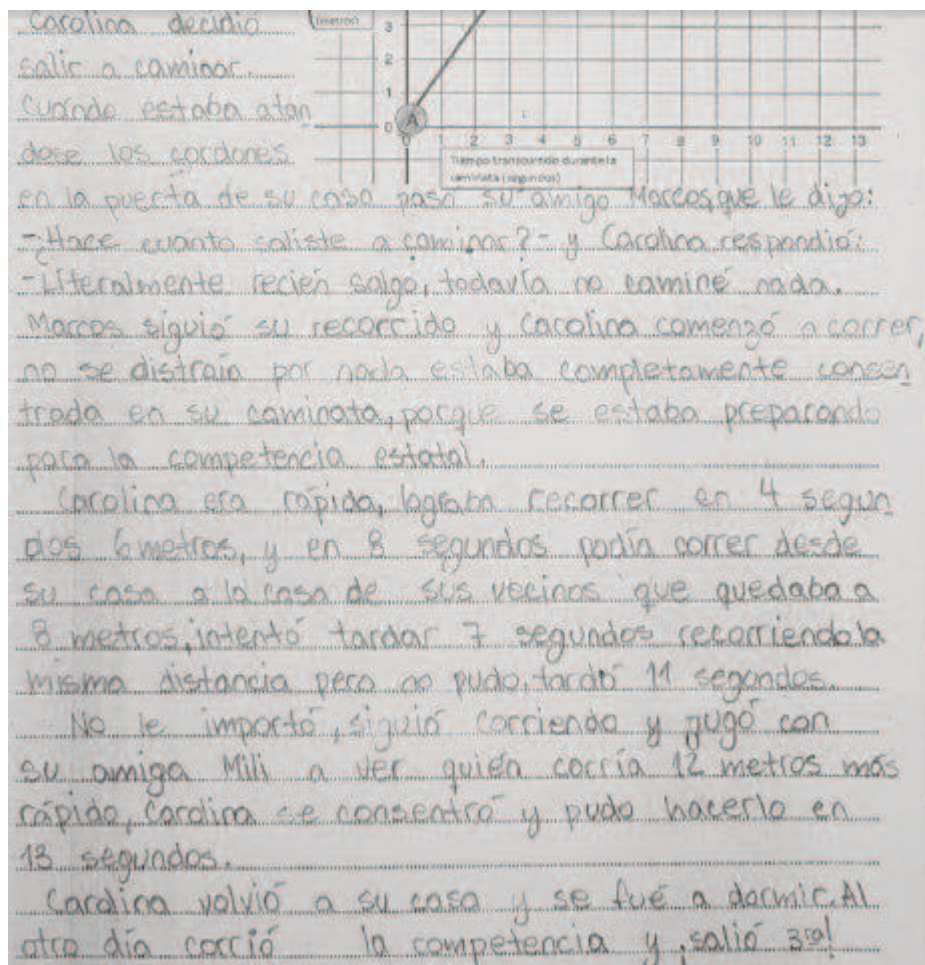 Carolina decidió
(metros)
3
salir a caminar.
2
Cuándo estaba atan
1
0 A
dose los cordones
0 1 2 3 4 5 6 7 8 9 10 11 12 13
Tiempo transcurrido durante la
caminata (segundos)
en la puerta de su casa pasó su amigo Marcos, que le dijo:
-¿Hace cuanto saliste a caminar?- y Carolina respondió:
-Literalmente recién salgo, todavía no caminé nada.
Marcos siguió su recorrido y Carolina comenzó a correr,
no se distraía por nada estaba completamente concen
trada en su caminata, porque se estaba preparando
para la competencia estatal.
Carolina era rápida, lograba recorrer en 4 segun
dos 6 metros, y en 8 segundos podía correr desde
su casa a la casa de sus vecinos que quedaba a
8 metros, intentó tardar 7 segundos recorriendo la
misma distancia pero no pudo, tardó 11 segundos.
No le importó, siguió corriendo y jugó con
su amiga Mili a ver quién corría 12 metros más
rápido, Carolina se consentró y pudo hacerlo en
13 segundos.
Carolina volvió a su casa y se fué a dormir. Al
otro día corrió la competencia y salió 3ra!